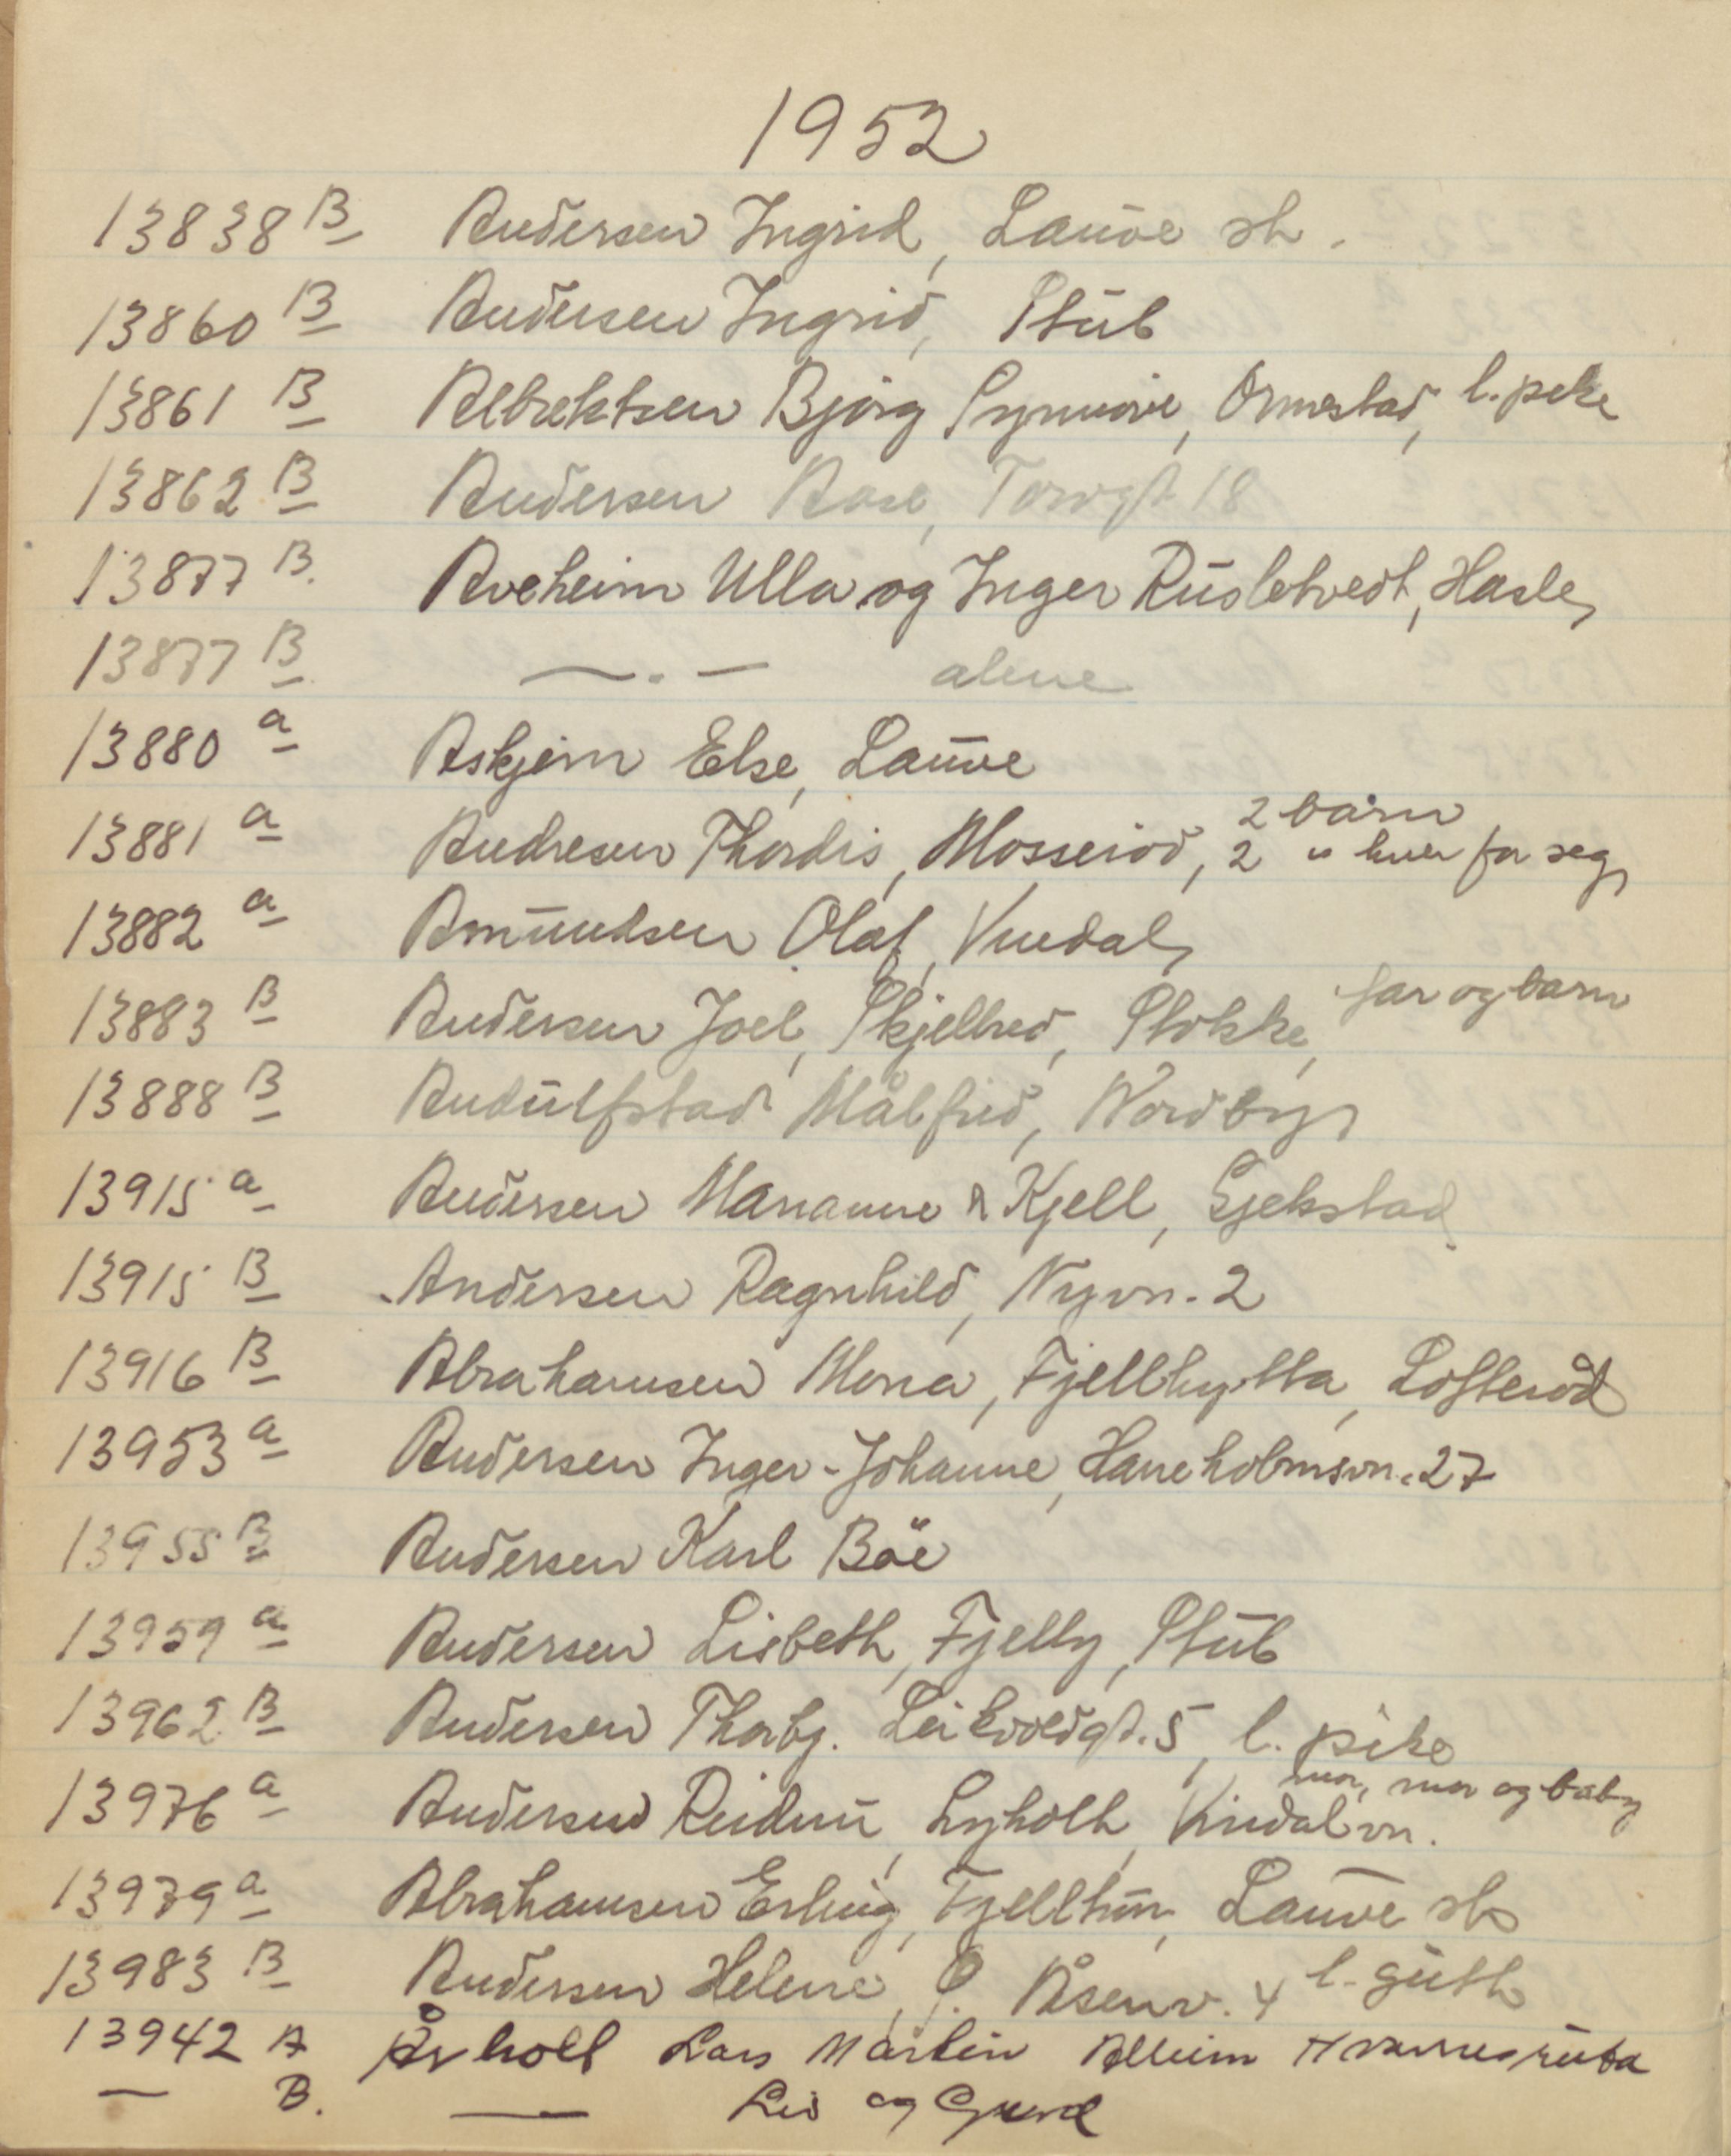 1952
13838 B Andersen Ingrid, Lauve st.
13860 B Andersen Ingrid, Stub
13861 B Albrektsen Bjørg Synnøve, Ormestad, l. pike
13862 B Andersen Aase, Torvgt 18
13877 B. Aveheim Ulla og Inger Rusletvedt, Hasle,
13877 B — . — alene
13880 a Askjem Else, Lauve
13881 a Andresen Thordis, Mosserød, 2 barn
2 " hver for seg
13882 a Amundsen Olaf, Vindal,
13883 B Andersen Joel, Skjellred, Stokke, far og barn
13888 B Andulfstad Målfrid, Nordby,
13915 a Andersen Marianne & Kjell, Gjekstad
13915 B Andersen Ragnhild, Nyvn. 2
13916 B Abrahamsen Mona, Fjellhytta, Løfterød
13953 a Andersen Inger-Johanne, Haneholmsvn. 27
13955 B Andersen Karl Böe
13959 a Andersen Lisbeth, Fjelly, Stub
13962 B Andersen Thorbj. Leikvoldgt. 5, l. pike
13976 a Andersen Reidun, Lyholt, Vindalvn. mor, mor og baby
13979 a Abrahamsen Erling, Fjelltun, Lauve st
13983 B Andersen Helene, Ø. Åsenv. 4 l. gutt
13942 A Årholt Lars Martin Alheim
— B. — Liv og Gerd